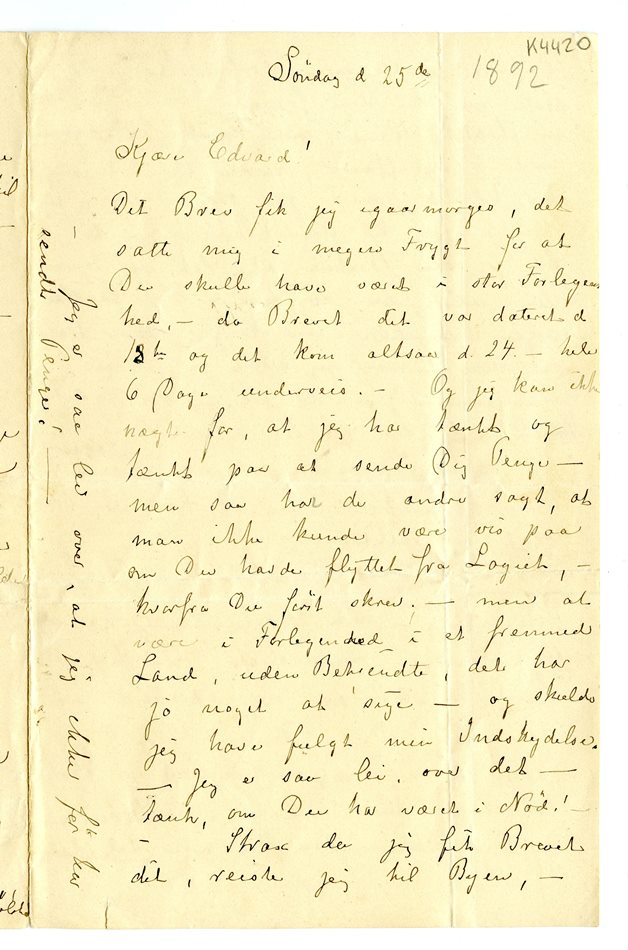 K4420
Søndag d 25de 1892
Kjære Edvard!
Dit Brev fik jeg igaarmorges, det
satte mig i megen Frygt for at
Du skulle have været i stor Forlegen
hed, – da Brevet dit var dateret d
18de og det kom altsaa d. 24. – hele
6 Dage underveis. – Og jeg kan ikke
nægte for, at jeg har tænkt og
tænkt paa at sende Dig Penge –
men saa har de andre sagt, at
man ikke kunde være vis paa
om Du havde flyttet fra Logiet, –
hvorfra Du først skrev; – men at
være i Forlegenhed i et fremmed
Land, uden Bekjendte, det har
jo noget at sige – og skulde
jeg have fulgt min Indskydelse.
– Jeg er saa lei over det –
tænk, om Du har været i Nød! –
– Strax da jeg fik Brevet
dit, reiste jeg til Byen, –
– Jeg er saa lei over, at jeg ikke før har
sendt Penge! –